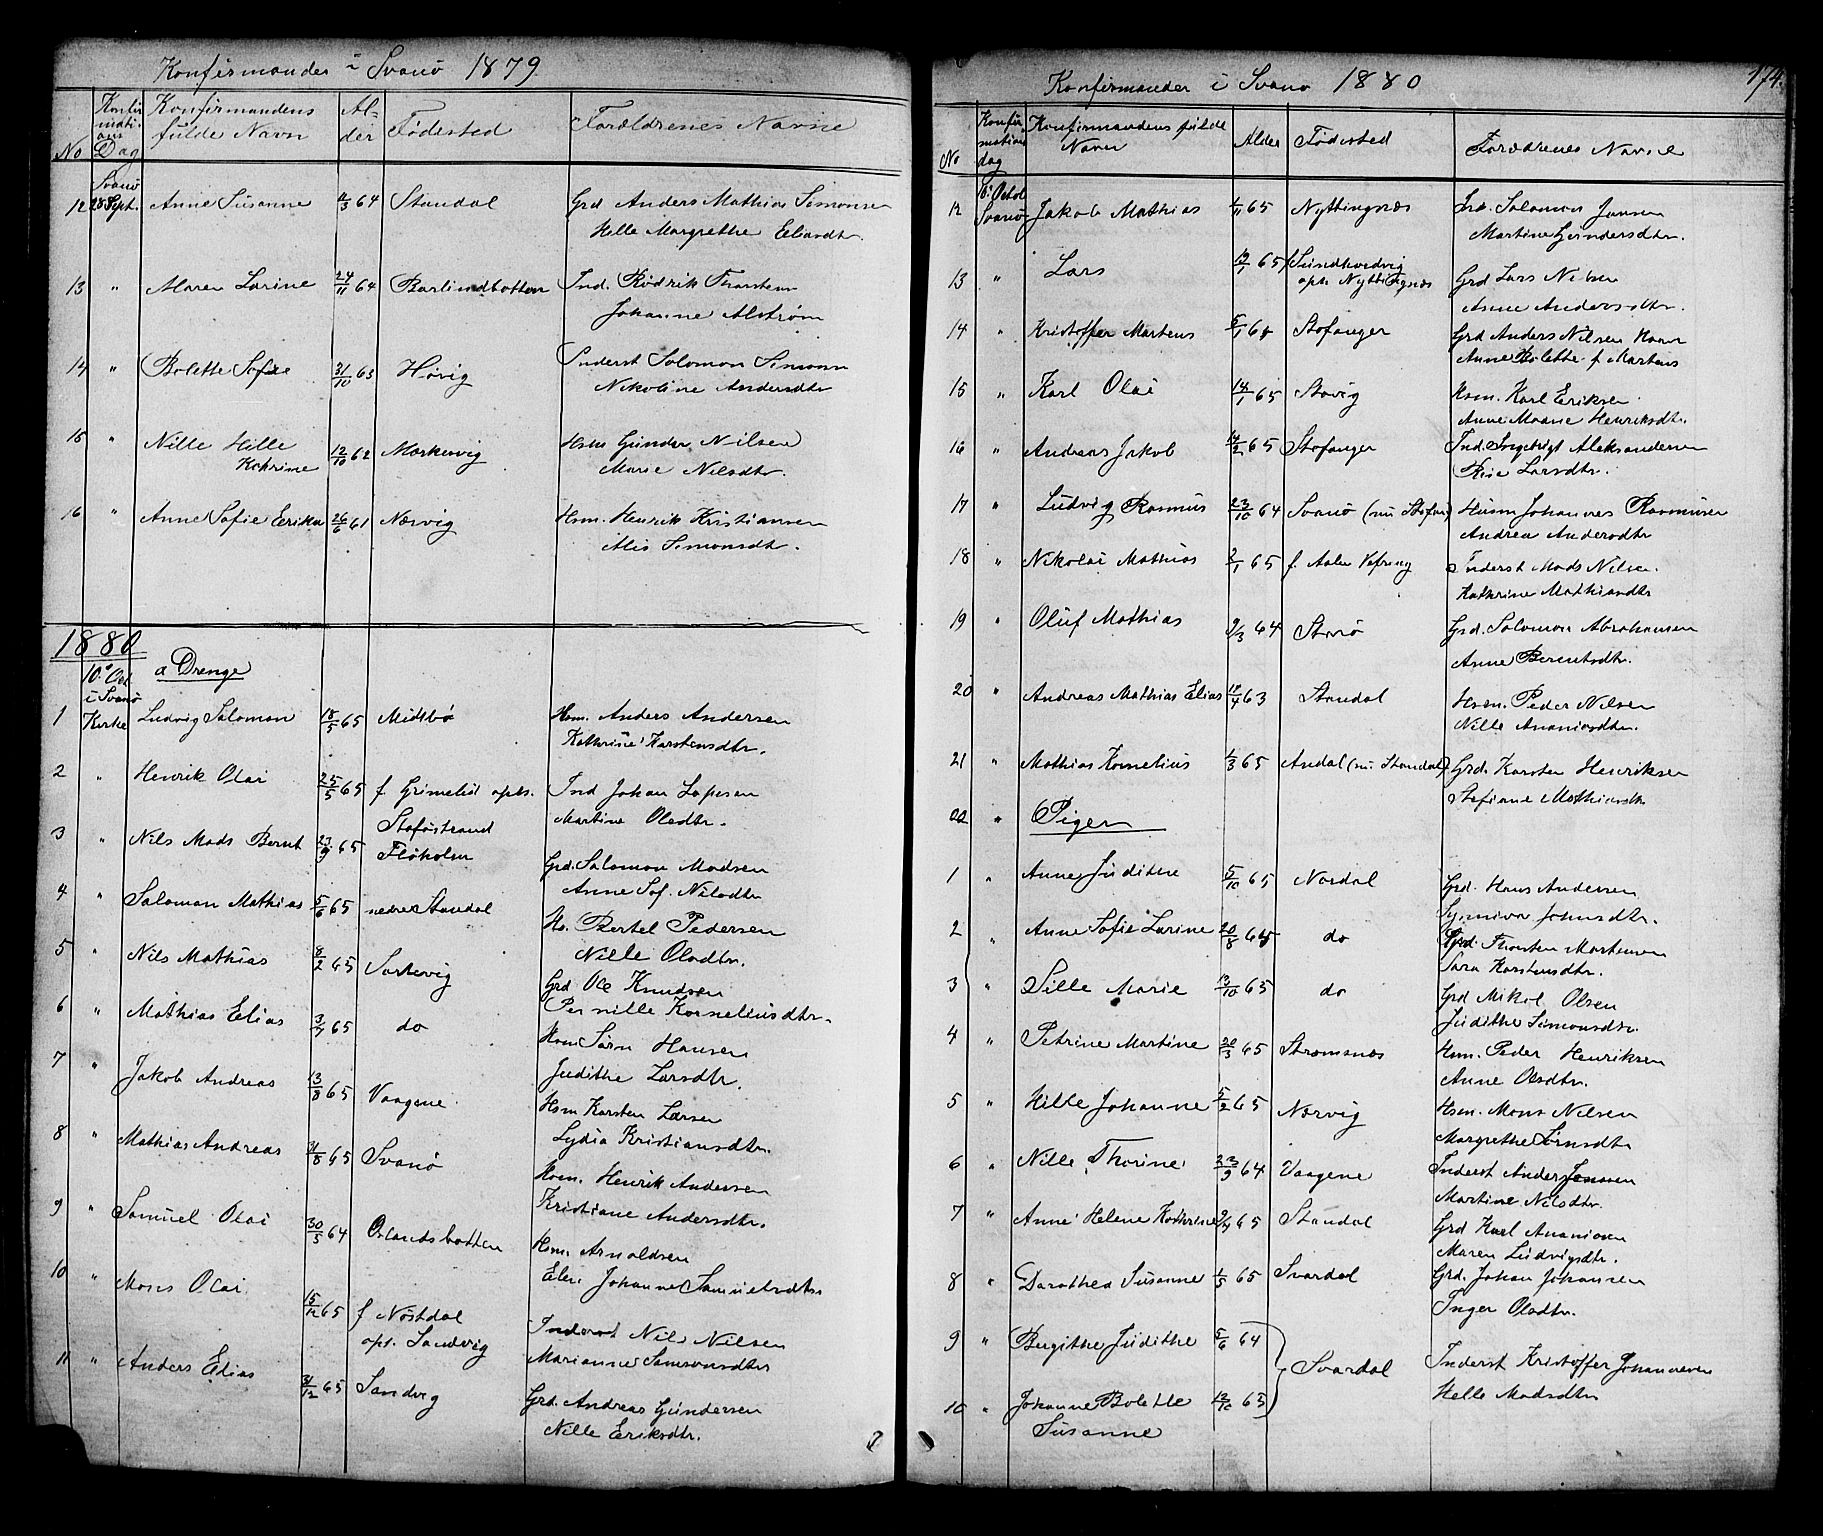 Konfirmander i Svanö 1879
No
Konfir
mati-
ons
Dag
Konfirmandens
fulde Navn
Al-
der
Födested
Forældrenes Navne
Svanö
12 28 Sept. Anne Susanne 64 Standal Grd Anders Mathias Simonsen
Hille Margrethe Eliasdtr.
13 " Maren Larine 24/11 64 Barlindbotten Ind. Rödrik Thorsten
Johanne Alström
14 " Bolette Sofie 31/10 63 Hövig Inderst Salomon Simonsen
Nikoline Andersdtr
15 " Nille Hille 12/10 62 Markevig Hsm Gunder Nilsen
Kathrine Marie Nilsdtr.
16 " Anne Sofie Erika 26/6 61 Nærvig Hsm. Henrik Kristiansen
Alis Simonsdtr.
1880
10' Oct. a Drenge
i Svanö
Kirke
1 Ludvig Salomon 18/5 65 Midtbö Hsm. Anders Andersen
Kathrine Karstensdtr.
2 " Henrik Olai 25/5 65 f. Grimelid opts. Ind Johan
Staföstrand Martine Olsdtr.
3 " Nils Mads Bernt 23/9 65 Flöholm Grd. Salomon Madsen
Anne Sof. Nilsdtr
4 " Salomon Mathias 5/6 65 nedre Standal Hs. Bertel Pedersen
Nille Olsdtr.
5 " Nils Mathias 8/2 65 Sørtevig Grd Ole Knudsen
Pernille Korneliusdtr.
6 " Mathias Elias 65 do Hsm Sörn Hansen
Judithe Larsdtr.
7 " Jakob Andreas 13/8 65 Vaagene. Hsm Karsten Larsen
Lydia Kristiansdtr.
8 " Mathias Andreas 31/8 65 Svanö Hsm. Henrik Andersen
Kristiane Andersdtr.
9 " Samuel Olai 30/5 64 Oslandsbotten Hsm. Arnoldsen
Elen Johanne Samuelsdtr
10 " Mons Olai 15/12 65 f Nöstdal Inderst Nils Nilsen
opt. Sandvig Marianne Samsonsdtr
11 " Anders Elias 31/12 65 Sandvig Grd. Andreas Gundersen
Nille Eriksdtr.
Konfirmander i Svanö 1880
174.
No
Konfir
mations
dag
Konfirmandens fulde
Navn
Alder
Födested
Forældrenes Navne
10' Octob
12 Svanö Jakob Mathias 1/11 65 Nyttingnæs Grd. Salomon Jansen
Martine Gundersdtr.
13 " Lars 65 Sundhordvig Grd Lars Nilsen
opt. Nyttingnæs Anne Andersdtr.
14 " Kristoffer Martens Stafanger Grd Anders Nilsen
Anne Bolette f. Martens
15 " Karl Olai 14/1 65 Stavig Hsm. Karl Eriksen
Anne Marie Henriksdtr.
16 " Andreas Jakob 14/2 65 Stafanger Ind. Ingebrigt Aleksandersen
Larsdtr.
17 " Ludvig Rasmus 23/10 64 Svanö (nu Stafan) Husm Johannes Rasmusen
Andrea Andersdtr
18 " Nikolai Mathias 2/1 65 f. Aalen Vefring Inderst Mads Nilsen.
Kathrine Mathiasdtr
19 " Oluf Mathias 9/3 64 Stavö Grd. Salomon Abrahamsen
Anne Berentsdtr.
20 " Andreas Mathias Elias 63 Standal Hsm. Peder Nilsen
Nille Ananiasdtr.
21 " Mathias Kornelius 1/3 65 Andal (nu Standal) Grd. Karsten Henriksen
Stefiane Mathiasdtr
22 " Piger
1 " Anne Judithe 5/10 65 Nordal Grd. Hans Andersen
Synniva Johnsdtr.
2 " Anne Sofie Larine 20/8 65 do Grd. Thorsten Martensen
Sara Karstensdtr.
3 " Sille Marie 13/10 65 do Grd Mikal Olsen
Judithe Simonsdtr.
4 " Petrine Martine 20/3 65 Strømsnæs Hsm. Peder Henriksen
Anne Olsdtr.
5 " Hille Johanne 5/2 65 Nærvig Hsm. Mons Nilsen
Margrethe Sörnsdtr
6 " Nille Thorine 23/9 64 Vaagene Inderst Anders Jensen
Martine Nilsdtr.
7 " Anne Helene Kathrine 65 Standal Grd Karl Ananiasen
Maren Ludvigsdtr.
8 " Dorothea Susanne 1/5 65 Svardal Grd. Johan Johansen
Inger Olsdtr.
9 " Birgithe Judithe 5/6 64 Svardal Inderst Kristoffer Johannesen
Helle Madsdtr
10 " Johanne Bolette 65
Susanne